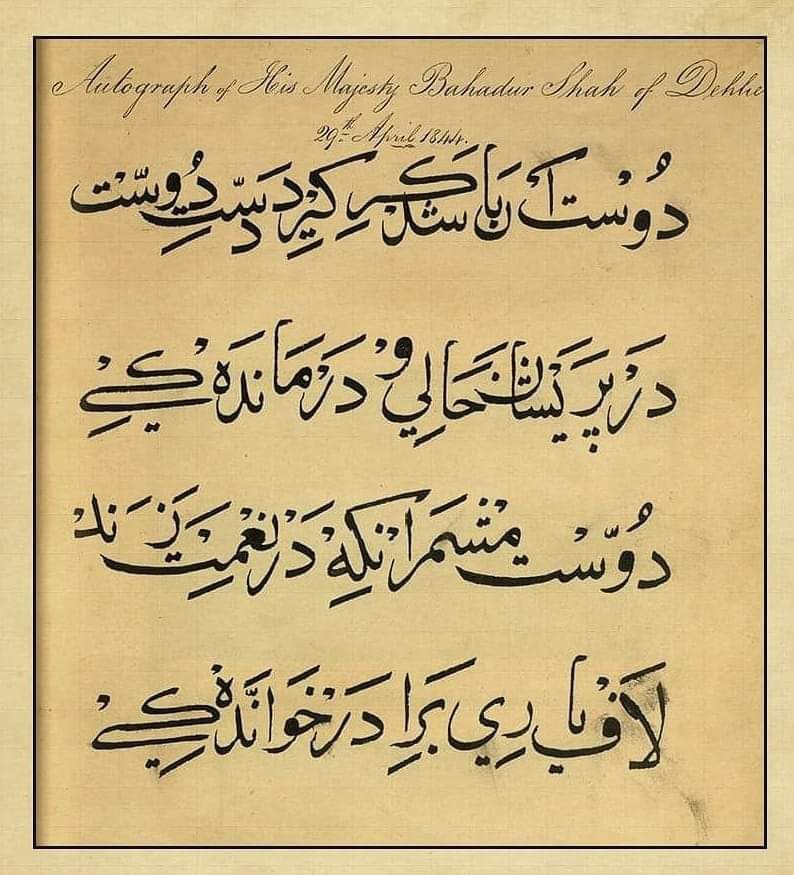 Autograph of His Majesty Bahadur Shah of Dehlie
29th April 1844.
دوست آن باشد که کیرد دست دوست
در پریشان حالی و درماندە کی
دوست مشمر انکه در نعمت زند
لاف یاری برادر خواندە کی